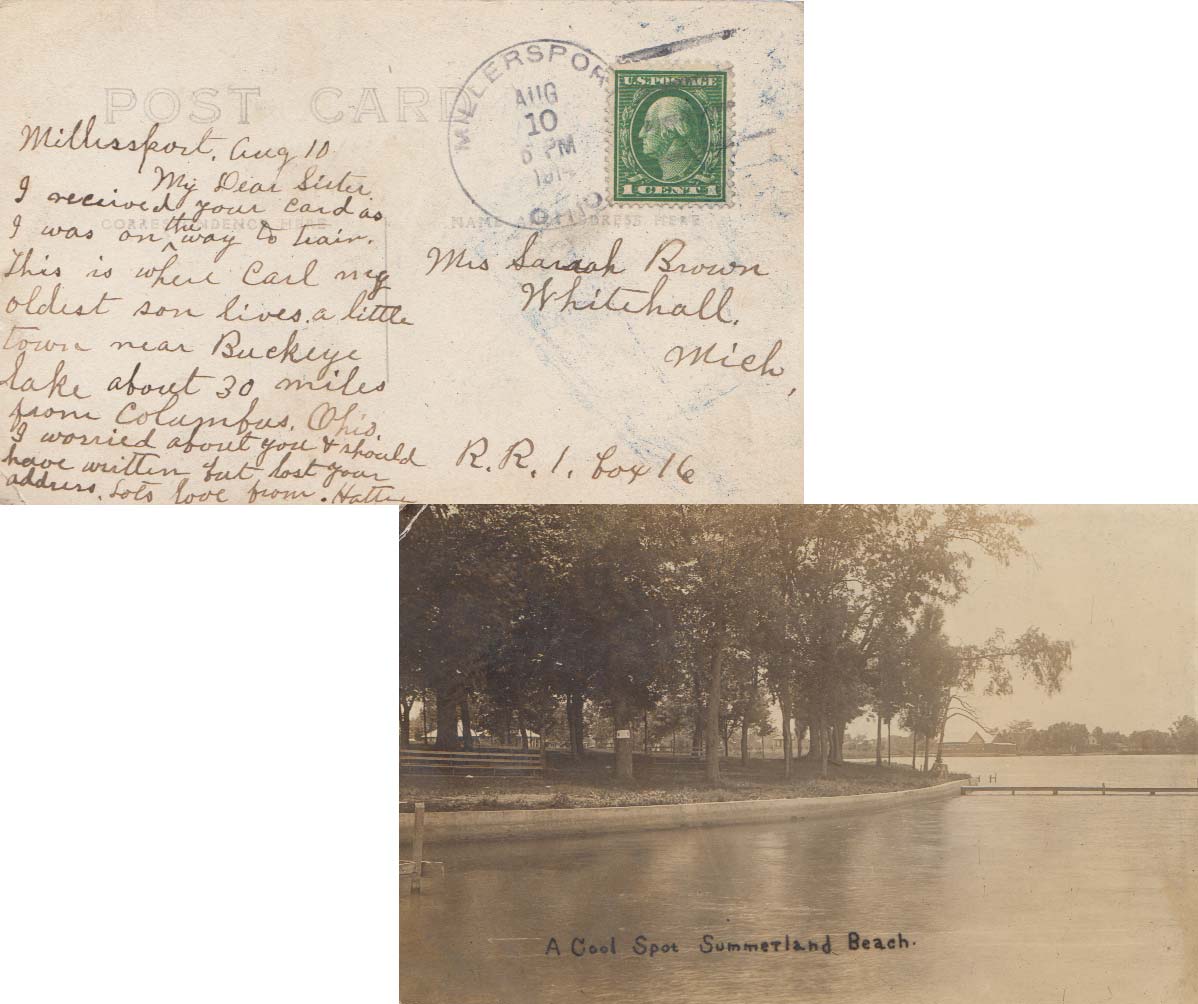 POST CARD
MILLERSPOR
AUG
10
6 PM
191
OHIO
U.S. POSTAGE
1 CENT 1
Millersport, Aug 10
My Dear Sister,
I received your card as
CORRESPONDENCE HERE
NAME AND ADDRESS HERE
I was on the way to train.
This is where Carl my
oldest son lives, a little
town near Buckeye
Lake about 30 miles
from Columbus, Ohio.
I worried about you & should
have written but lost your
address. Lots love from. Hattie
Mrs Sarah Brown
Whitehall,
Mich,
R.R. 1. box 16
A Cool Spot Summerland Beach.